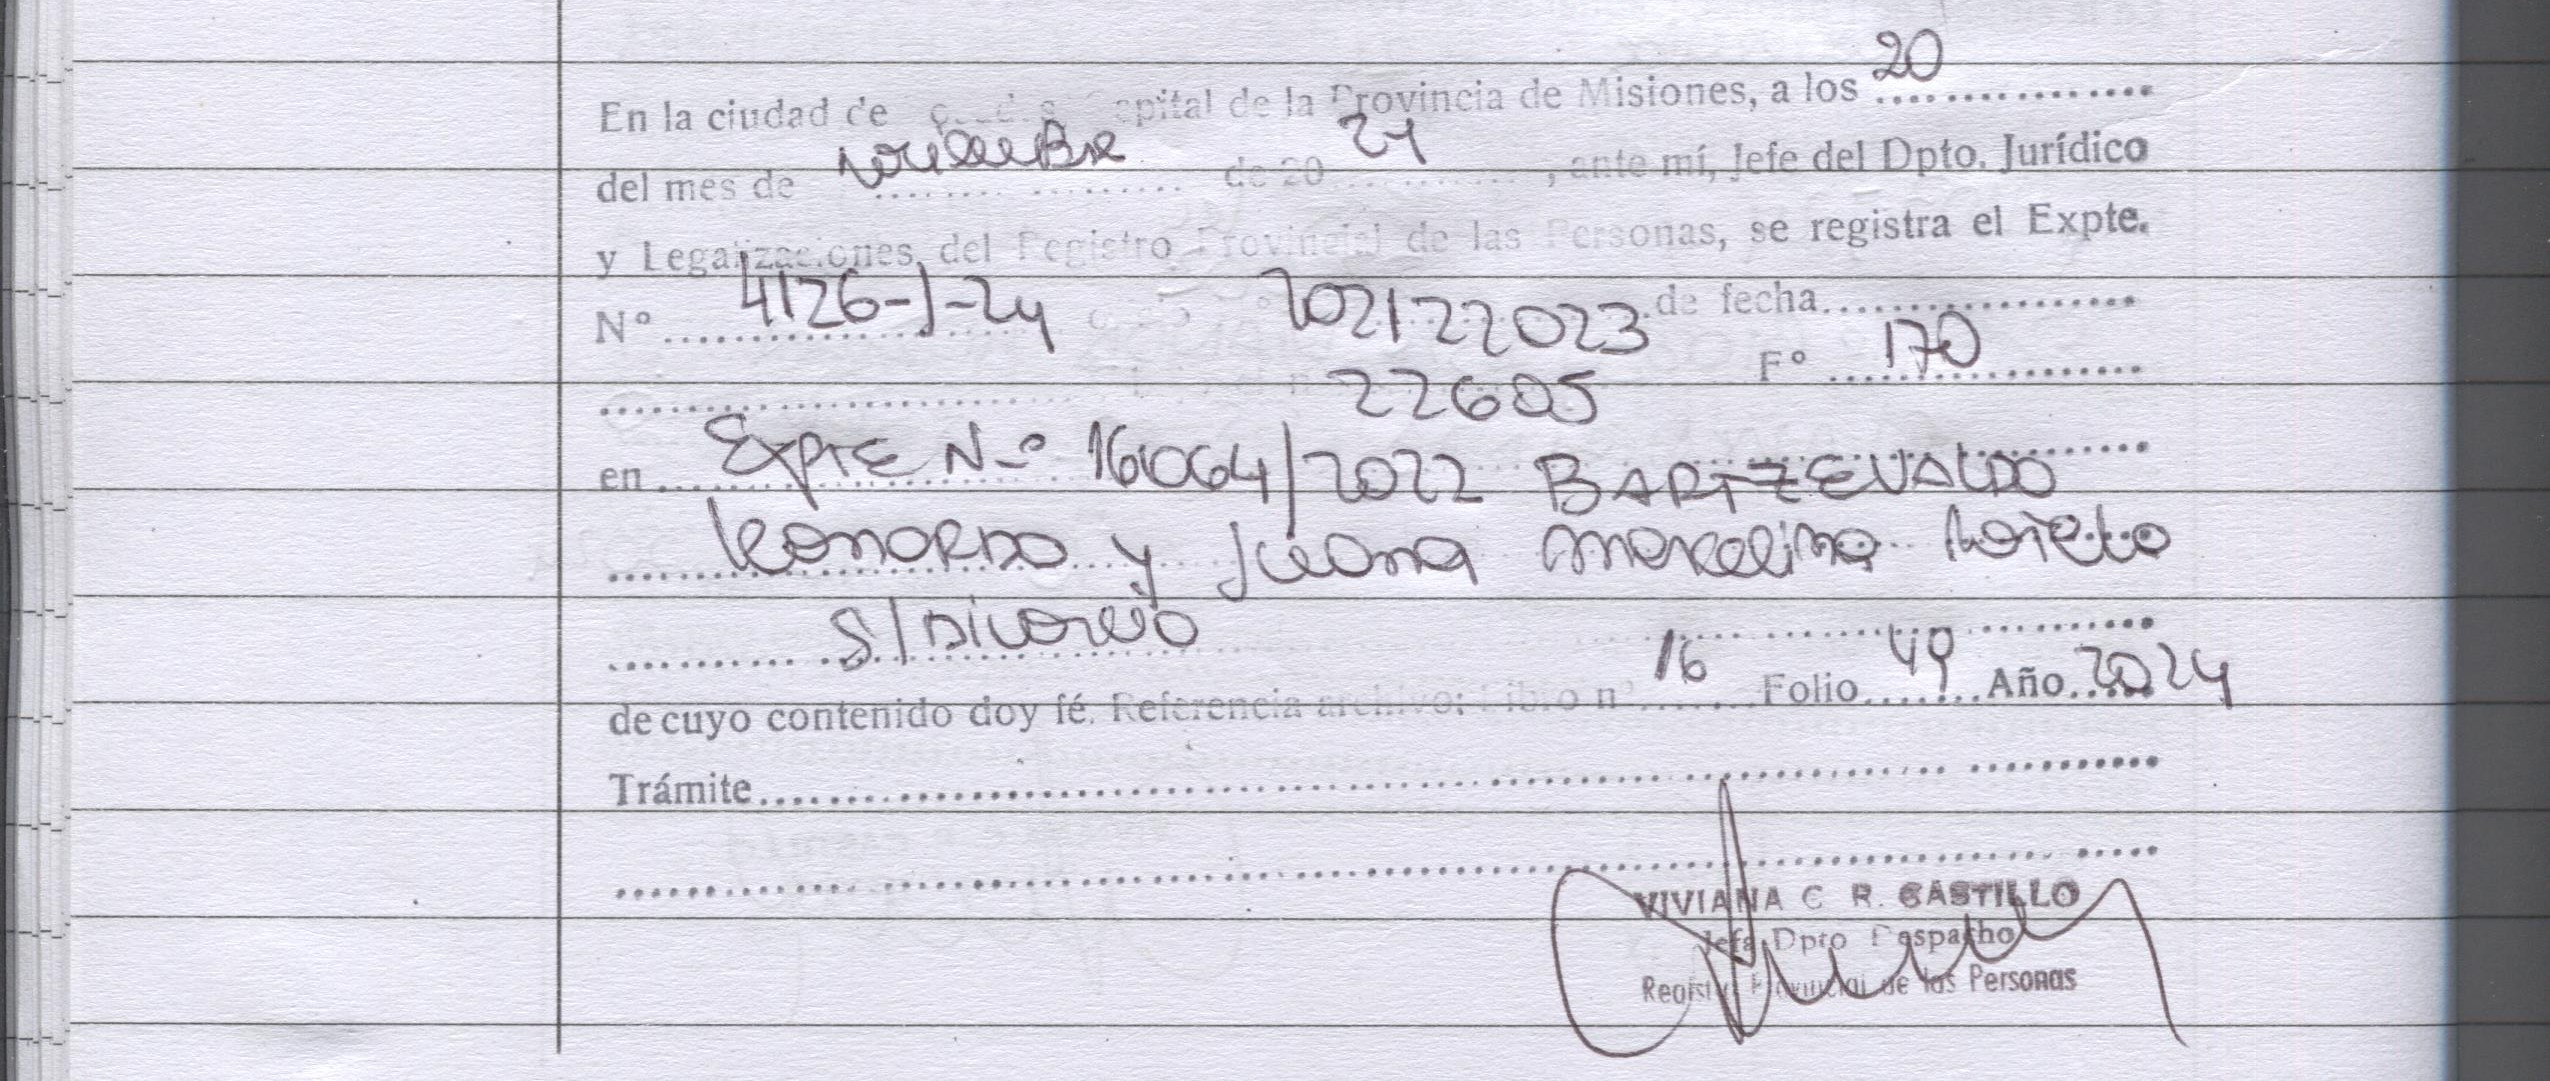 En la ciudad de Capital de la Provincia de Misiones, a los 20
del mes de Noviembre de 20 24, ante mí, Jefe del Dpto. Jurídico
y Legalizaciones, del Registro Provincial de las Personas, se registra el Expte.
Nº 4126-J-24 202122023 de fecha
22605 Fº 170
en Expte N-º 16064/2022 BARTZ EVALDO
Leonardo y Juana Marcelina Loreto
S/Divorcio
de cuyo contenido doy fé. Referencia archivo: Libro nº 16 Folio 49 Año 2024
Trámite
VIVIANA C R. CASTILLO
Jefa Dpto Despacho
Registro Provincial de las Personas